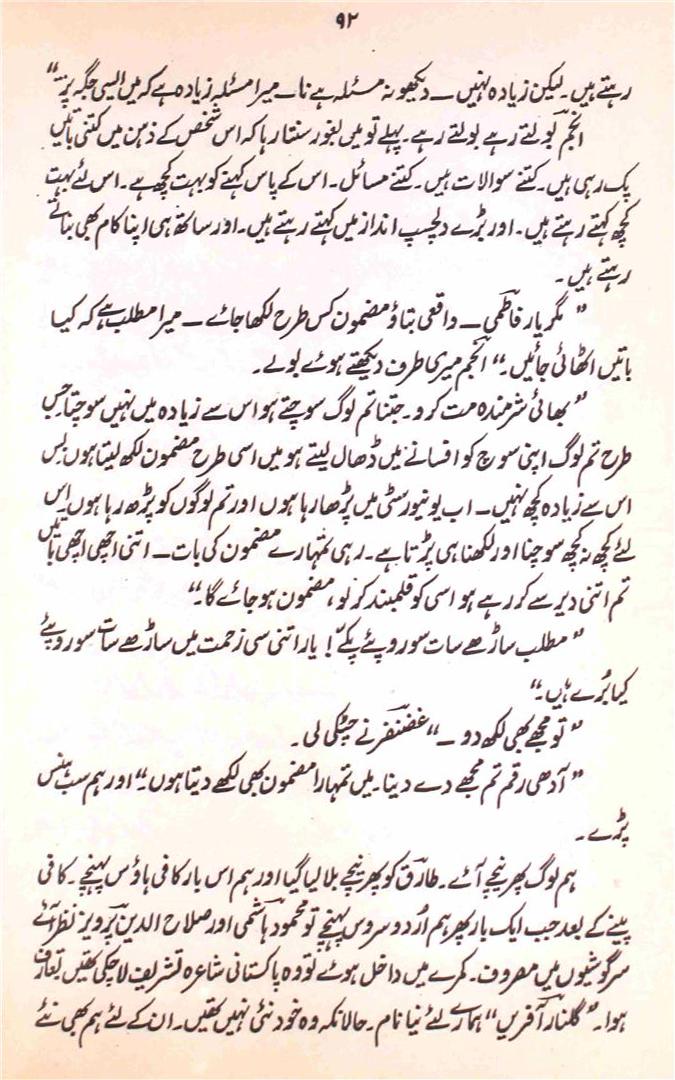 ۹۲
رہتے ہیں۔ لیکن زیادہ نہیں — دیکھو نہ مسئلہ ہے نا — میرا مسئلہ زیادہ ہے کہ میں ایسی جگہ پر تھے"
انجم بولتے رہے بولتے رہے۔ پہلے تو میں بغور سنتا رہا کہ اس شخص کے ذہن میں کتنی باتیں
پک رہی ہیں۔ کتنے سوالات ہیں۔ کتنے مسائل۔ اس کے پاس کہنے کو بہت کچھ ہے۔ اس لئے بہت
کچھ کہتے رہتے ہیں۔ اور بڑے دلچسپ انداز میں کہتے رہتے ہیں۔ اور ساتھ ہی اپنا کام بھی بناتے
رہتے ہیں۔
"مگر یار فاطمی — واقعی بتاؤ مضمون کس طرح لکھا جائے — میرا مطلب ہے کہ کیا
باتیں اٹھائی جائیں۔" انجم میری طرف دیکھتے ہوئے بولے۔
"بھائی شرمندہ مت کرو۔ جتنا تم لوگ سوچتے ہو اس سے زیادہ میں نہیں سوچتا۔ جس
طرح تم لوگ اپنی سوچ کو افسانے میں ڈھال لیتے ہو میں اسی طرح مضمون لکھ لیتا ہوں بس
اس سے زیادہ کچھ نہیں — اب یونیورسٹی میں پڑھا رہا ہوں اور تم لوگوں کو پڑھ رہا ہوں۔ اس
لئے کچھ نہ کچھ سوچنا اور لکھنا ہی پڑتا ہے۔ رہی تمہارے مضمون کی بات — اتنی اچھی اچھی باتیں
تم اتنی دیر سے کر رہے ہو اسی کو قلمبند کر لو، مضمون ہو جائے گا۔"
"مطلب ساڑھے سات سو روپئے پکے! یار اتنی سی زحمت میں ساڑھے سات سو روپیئے
کیا بُرے ہیں۔"
"تو مجھے بھی لکھ دو —" غضنفر نے چٹکی لی۔
"آدھی رقم تم مجھے دے دینا۔ میں تمہارا مضمون بھی لکھے دیتا ہوں۔" اور ہم سب ہنس
پڑے۔
ہم لوگ پھر نیچے آئے۔ طارق کو پھر نیچے بلا لیا گیا اور ہم اس بار کافی ہاؤس پہنچے۔ کافی
پینے کے بعد جب ایک بار پھر ہم اُردو سروس پہنچے تو محمود ہاشمی اور صلاح الدین پرویز نظر آئے
سرگوشیوں میں مصروف۔ کمرے میں داخل ہوئے تو وہ پاکستانی شاعرہ تشریف لا چکی تھیں تعارف
ہوا۔ "گلنار آفریں" ہمارے لئے نیا نام۔ حالانکہ وہ خود نئی نہیں تھیں۔ ان کے لئے ہم بھی نئے